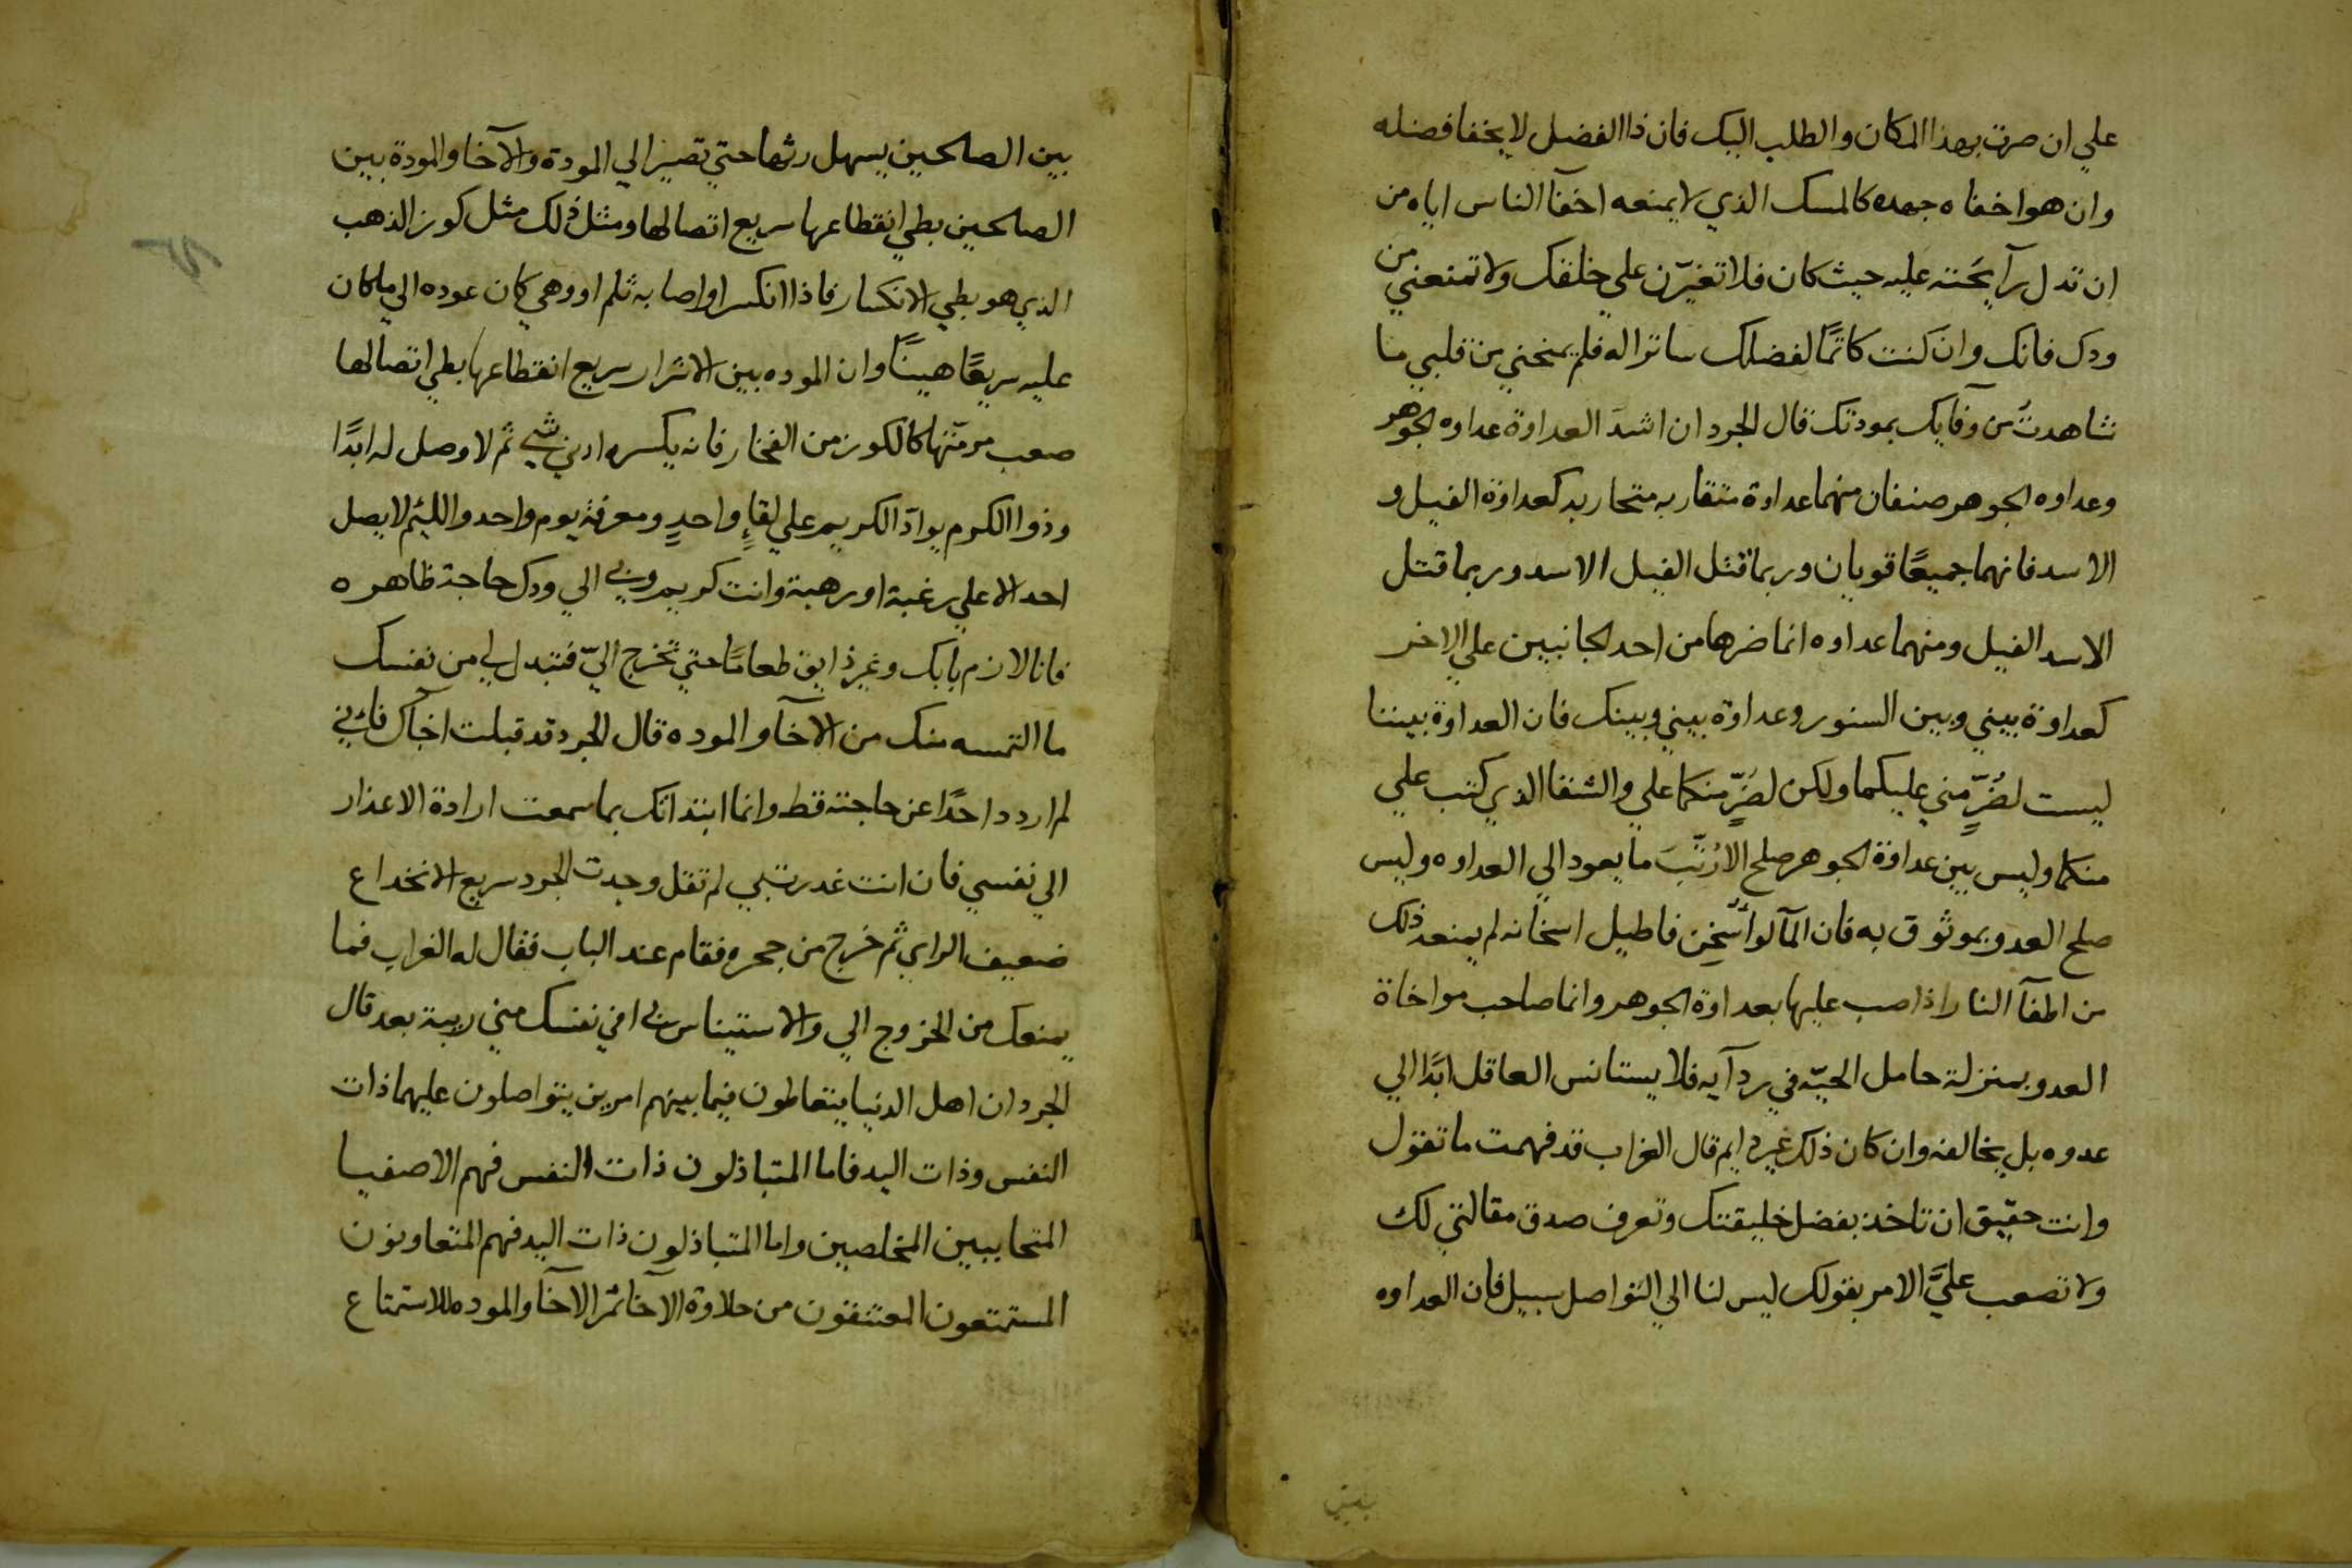 علي ان صرت بهذا المكان والطلب اليك فان ذا الفضل لا يخفا فضله
وان هو اخفاه جهده كالمسك الذي لا يمنعه اخفآ الناس اياه من
ان تدل رآيحته عليه حيث كان فلا تغيّرن علي خلقك ولا تمنعني من
ودك فانك وان كنت كاتمًا لفضلك ساتراله فلم يمنحني من قلبي ما
شاهدتُ من وفآيك بمودتك قال الجرد ان اشدَ العداوة عداوه الجوهر
وعداوه الجوهر صنفان منهما عداوة متقاربه متحاربه كعداوة الفيل و
الاسد فانهما جميعًا قويان وربما قتل الفيل الاسد وربما قتل
الاسد الفيل ومنهما عداوه انما ضرها من احد الجانبين علي الاخر
كعداوة بيني وبين السنور وعداوة بيني وبينك فان العداوة بيننا
ليست لضُرٍّ مني عليكما ولكن لضَرٍّ منكما علي والشقا الذي كتب علي
منكما وليس بين عداوة الجوهر صلح الا رُيَّثَ ما يعود الي العداوه وليس
صلح العدو بموثوق به فان المآ لو أُسْخِن فاطيل اسخانه لم يمنعه ذلك
من اطفآ النار اذا صب عليها بعداوة الجوهر وانما صاحب مواخاة
العدو بمنزلة حامل الحيّه في ردآيه فلا يستانس العاقل ابدًا الي
عدوه بل يخالفه وان كان ذلك غير دايم قال الغراب قد فهمت ما تقول
وانت حقيق ان تاخذ بفضل خليقتك وتعرف صدق مقالتي لك
ولا تصعب عليَّ الامر بقولك ليس لنا الي التواصل سبيل فان العداوه
بين
بين الصلحين يسهل رثها حتي تصير الي المودة والآخا والمودة بين
الصلحين بطي انقطاعها سريع اتصالها ومثل ذلك مثل كوز الذهب
الذي هو بطي الانكسار فاذا انكسر او اصابه ثلم او وهي كان عوده الي ما كان
عليه سريعًا هينًا وان الموده بين الاشرار سريع انقطاعها بطي اتصالها
صعب مرمّتها كالكوز من الفخار فانه يكسره ادني شي ثم لا وصل له ابدًا
وذوا الكرم يوادّ الكريم علي لقآءٍ واحدٍ ومعرفة يوم واحد والليئم لا يصل
احد الا علي رغبة او رهبة وانت كريم وبي الي ودك حاجة ظاهره
فانا لازم بابك وغير ذايق طعامًا حتي تخرج اليّ فتبدل لي من نفسك
ما التمسه منك من الآخآ والموده قال الجرد قد قبلت اخآك فاني
لم اردد احدًا عن حاجته قط وانما ابتداتك بما سمعت ارادة الاعذار
الي نفسي فان انت غدرت بي لم تقل وجدت الجرد سريع الانخداع
ضعيف الراي ثم خرج من جحره فقام عند الباب فقال له الغراب فما
يمنعك من الخروج الي والاستيناس بي افي نفسك مني ريبة بعد قال
الجرد ان اهل الدنيا يتعاطون فيما بينهم امرين يتواصلون عليهما ذات
النفس وذات اليد فاما المتباذلون ذات النفس فهم الاصفيا
المتحاببين المخلصين واما المتباذلون ذات اليد فهم المتعاونون
المستمتعون المعتنقون من حلاوة الآخا ثمر الآخآ والموده للاستمتاع